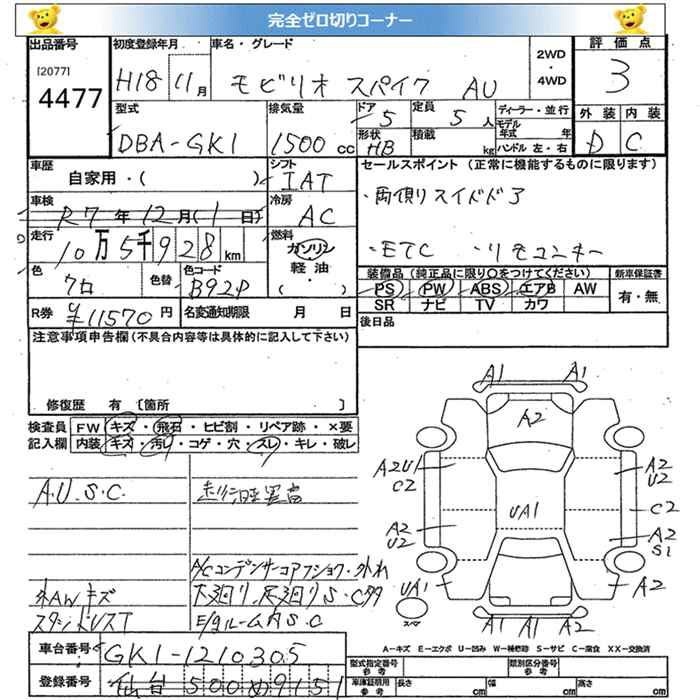 完全ゼロ切りコーナー
出品番号 初度登録年月 車名・グレード 2WD・4WD 評価点
[2077]
4477 H18 11月 モビリオ スパイク AU 3
型式 排気量 ドア 定員 ディーラー・並行 外装 内装
DBA-GK1 1500cc 5 5人 モデル年式 年 D C
形状 HB 積載 kg ハンドル 左・右
車歴 シフト セールスポイント(正常に機能するものに限ります)
自家用・( ) IAT ・両側リスイドドア
車検 冷房
R7年12月(1日) AC
走行 燃料
10万5千928km ガソリン・軽油・( ) ・ETC ・リモコンキー
色 色替 色コード 装備品(純正品に限り○をつけてください) 新車保証書
クロ B92P PS PW ABS エアB AW 有・無
SR ナビ TV カワ
R券 ¥11570円 名変通知期限 月 日 後日品
注意事項申告欄(不具合内容等は具体的に記入して下さい)
修復歴 有 [箇所 ]
検査員 FW キズ・飛石・ヒビ割・リペア跡・×要
記入欄 内装 キズ・汚レ・コゲ・穴・スレ・キレ・破レ
A1 A1
A2
A2U1 C2 A2 U2
A.U.S.C. UA1 C2
A2 U2 A2 S1
A/Cコンデンサーコアフショク・外れ
外AWキズ 下廻り、足廻りS・C多 UA1 A2
E/gルーム内S.C スペア
A1 A1 A2
A－キズ E－エクボ U－凹み W－補修跡 S－サビ C－腐食 XX－交換済
車台番号 GK1-1210305 型式指定番号 類別区分番号
参考 参考
登録番号 仙台500め9151 車庫証明用 参考 長さ cm 幅 cm 高さ cm